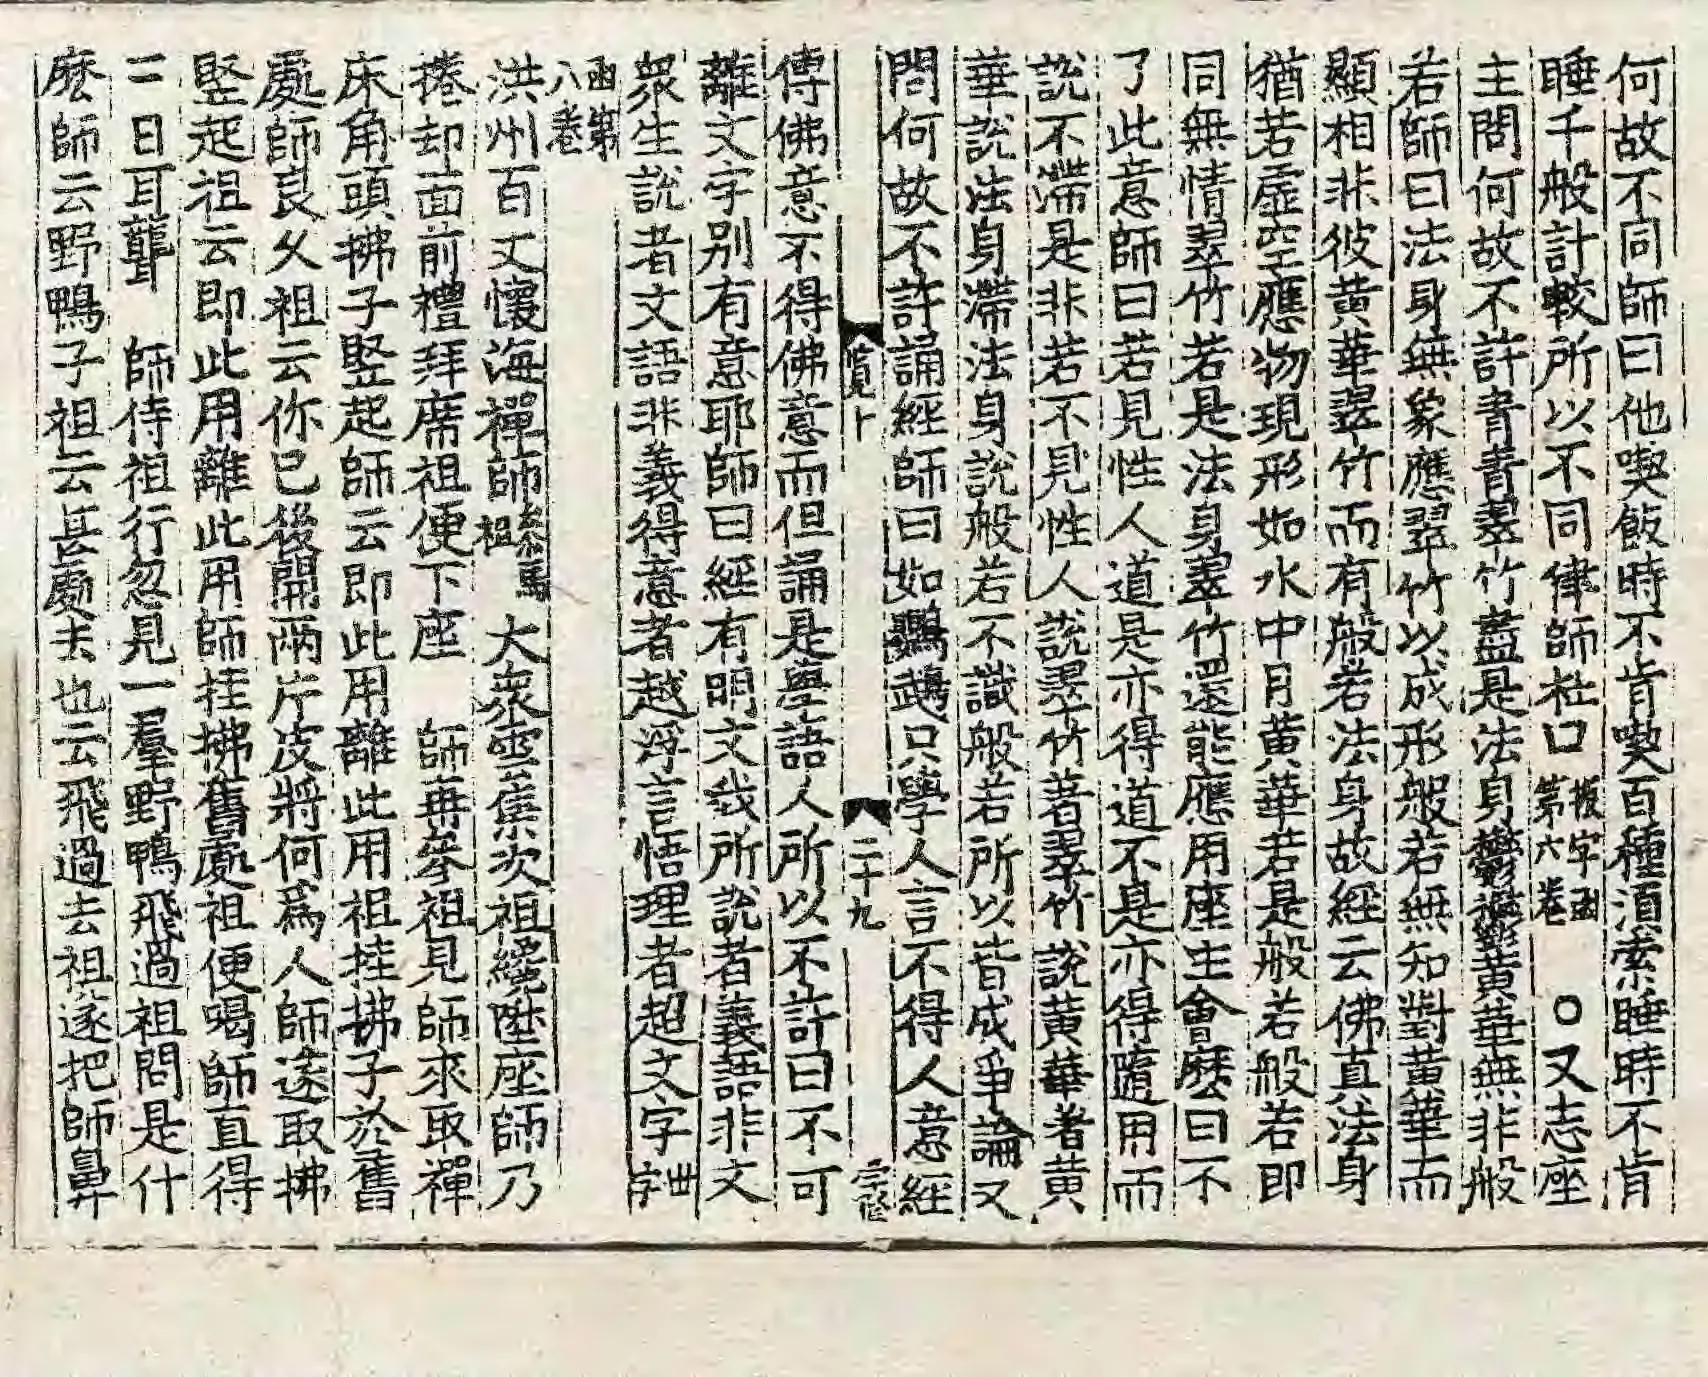 何故不同師曰他喫飯時不肯喫百種須索睡時不肯
睡千般計較所以不同律師杜口 板字函第六卷 ○又志座
主問何故不許青青翠竹盡是法身鬱鬱黃華無非般
若師曰法身無象應翠竹以成形般若無知對黃華而
顯相非彼黃華翠竹而有般若法身故經云佛真法身
猶若虛空應物現形如水中月黃華若是般若般若即
同無情翠竹若是法身翠竹還能應用座主會麼曰不
了此意師曰若見性人道是亦得道不是亦得隨用而
說不滯是非若不見性人說翠竹著翠竹說黃華著黃
華說法身滯法身說般若不識般若所以皆成爭論又
問何故不許誦經師曰如鸚鵡只學人言不得人意經
覽上 二十九
傳佛意不得佛意而但誦是學語人所以不許曰不可
離文字別有意耶師曰經有明文我所說者義語非文
衆生說者文語非義得意者越浮言悟理者超文字 世字
函第八卷
洪州百丈懷海禪師 叅馬祖 大衆雲集次祖纔陞座師乃
捲却面前禮拜席祖便下座 師再參祖見師來取禪
床角頭拂子竪起師云即此用離此用祖挂拂子於舊
處師良久祖云你已後開兩片皮將何爲人師遂取拂
竪起祖云即此用離此用師挂拂舊處祖便喝師直得
二日耳聾 師侍祖行忽見一羣野鴨飛過祖問是什
麽師云野鴨子祖云甚處去也云飛過去祖遂把師鼻